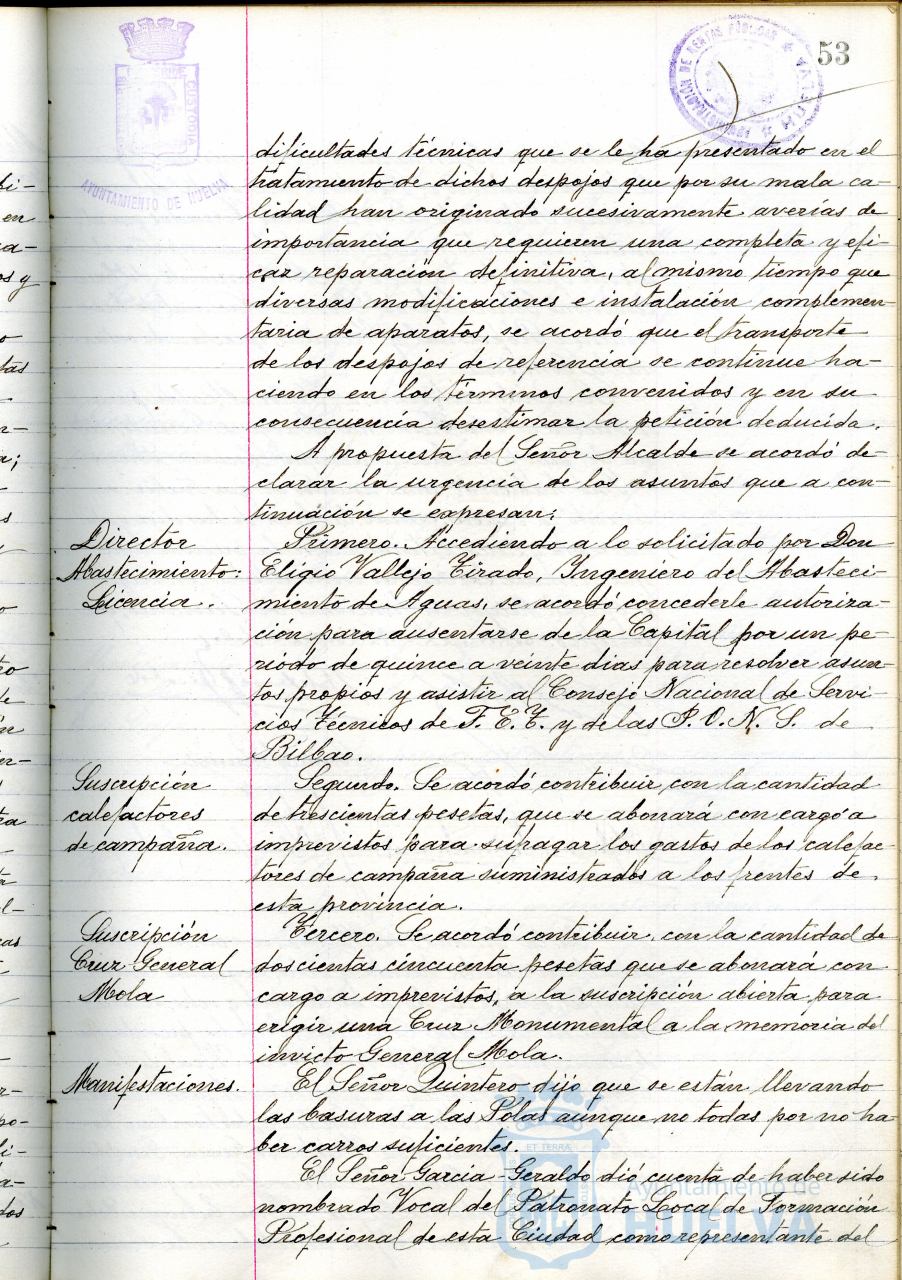 53
AYUNTAMIENTO DE HUELVA
dificultades técnicas que se le ha presentado en el
tratamiento de dichos despojos que por su mala ca-
lidad han originado sucesivamente averías de
importancia que requieren una completa y efi-
caz reparación definitiva, al mismo tiempo que
diversas modificaciones e instalación complemen-
taria de aparatos, se acordó que el transporte
de los despojos de referencia se continue ha-
ciendo en los términos convenidos y en su
consecuencia desestimar la petición deducida.
A propuesta del Señor Alcalde se acordó de-
clarar la urgencia de los asuntos que a con-
tinuación se expresan:
Director
Abastecimiento:
Licencia.
Primero. Accediendo a lo solicitado por Don
Eligio Vallejo Tirado, Ingeniero del Abasteci-
miento de Aguas, se acordó concederle autoriza-
ción para ausentarse de la Capital por un pe-
riódo de quince a veinte dias para resolver asun-
tos propios y asistir al Consejo Nacional de Servi-
cios Técnicos de F. E. T. y de las J. O. N. S. de
Bilbao.
Suscripción
calefactores
de campaña.
Segundo. Se acordó contribuir, con la cantidad
de trescientas pesetas, que se abonará con cargo a
imprevistos para sufragar los gastos de los calefac-
tores de campaña suministrados a los frentes de
esta provincia.
Suscripción
Cruz General
Mola
Tercero. Se acordó contribuir, con la cantidad de
doscientas cincuenta pesetas que se abonará con
cargo a imprevistos, a la suscripción abierta para
erigir una Cruz Monumental a la memoria del
invicto General Mola.
Manifestaciones.
El Señor Quintero dijo que se están llevando
las basuras a las Polas aunque no todas por no ha-
ber carros suficientes.
El Señor Garcia-Geraldo dió cuenta de haber sido
nombrado Vocal del Patronato Local de Formación
Profesional de esta Ciudad como representante del
Ayuntamiento de
HUELVA